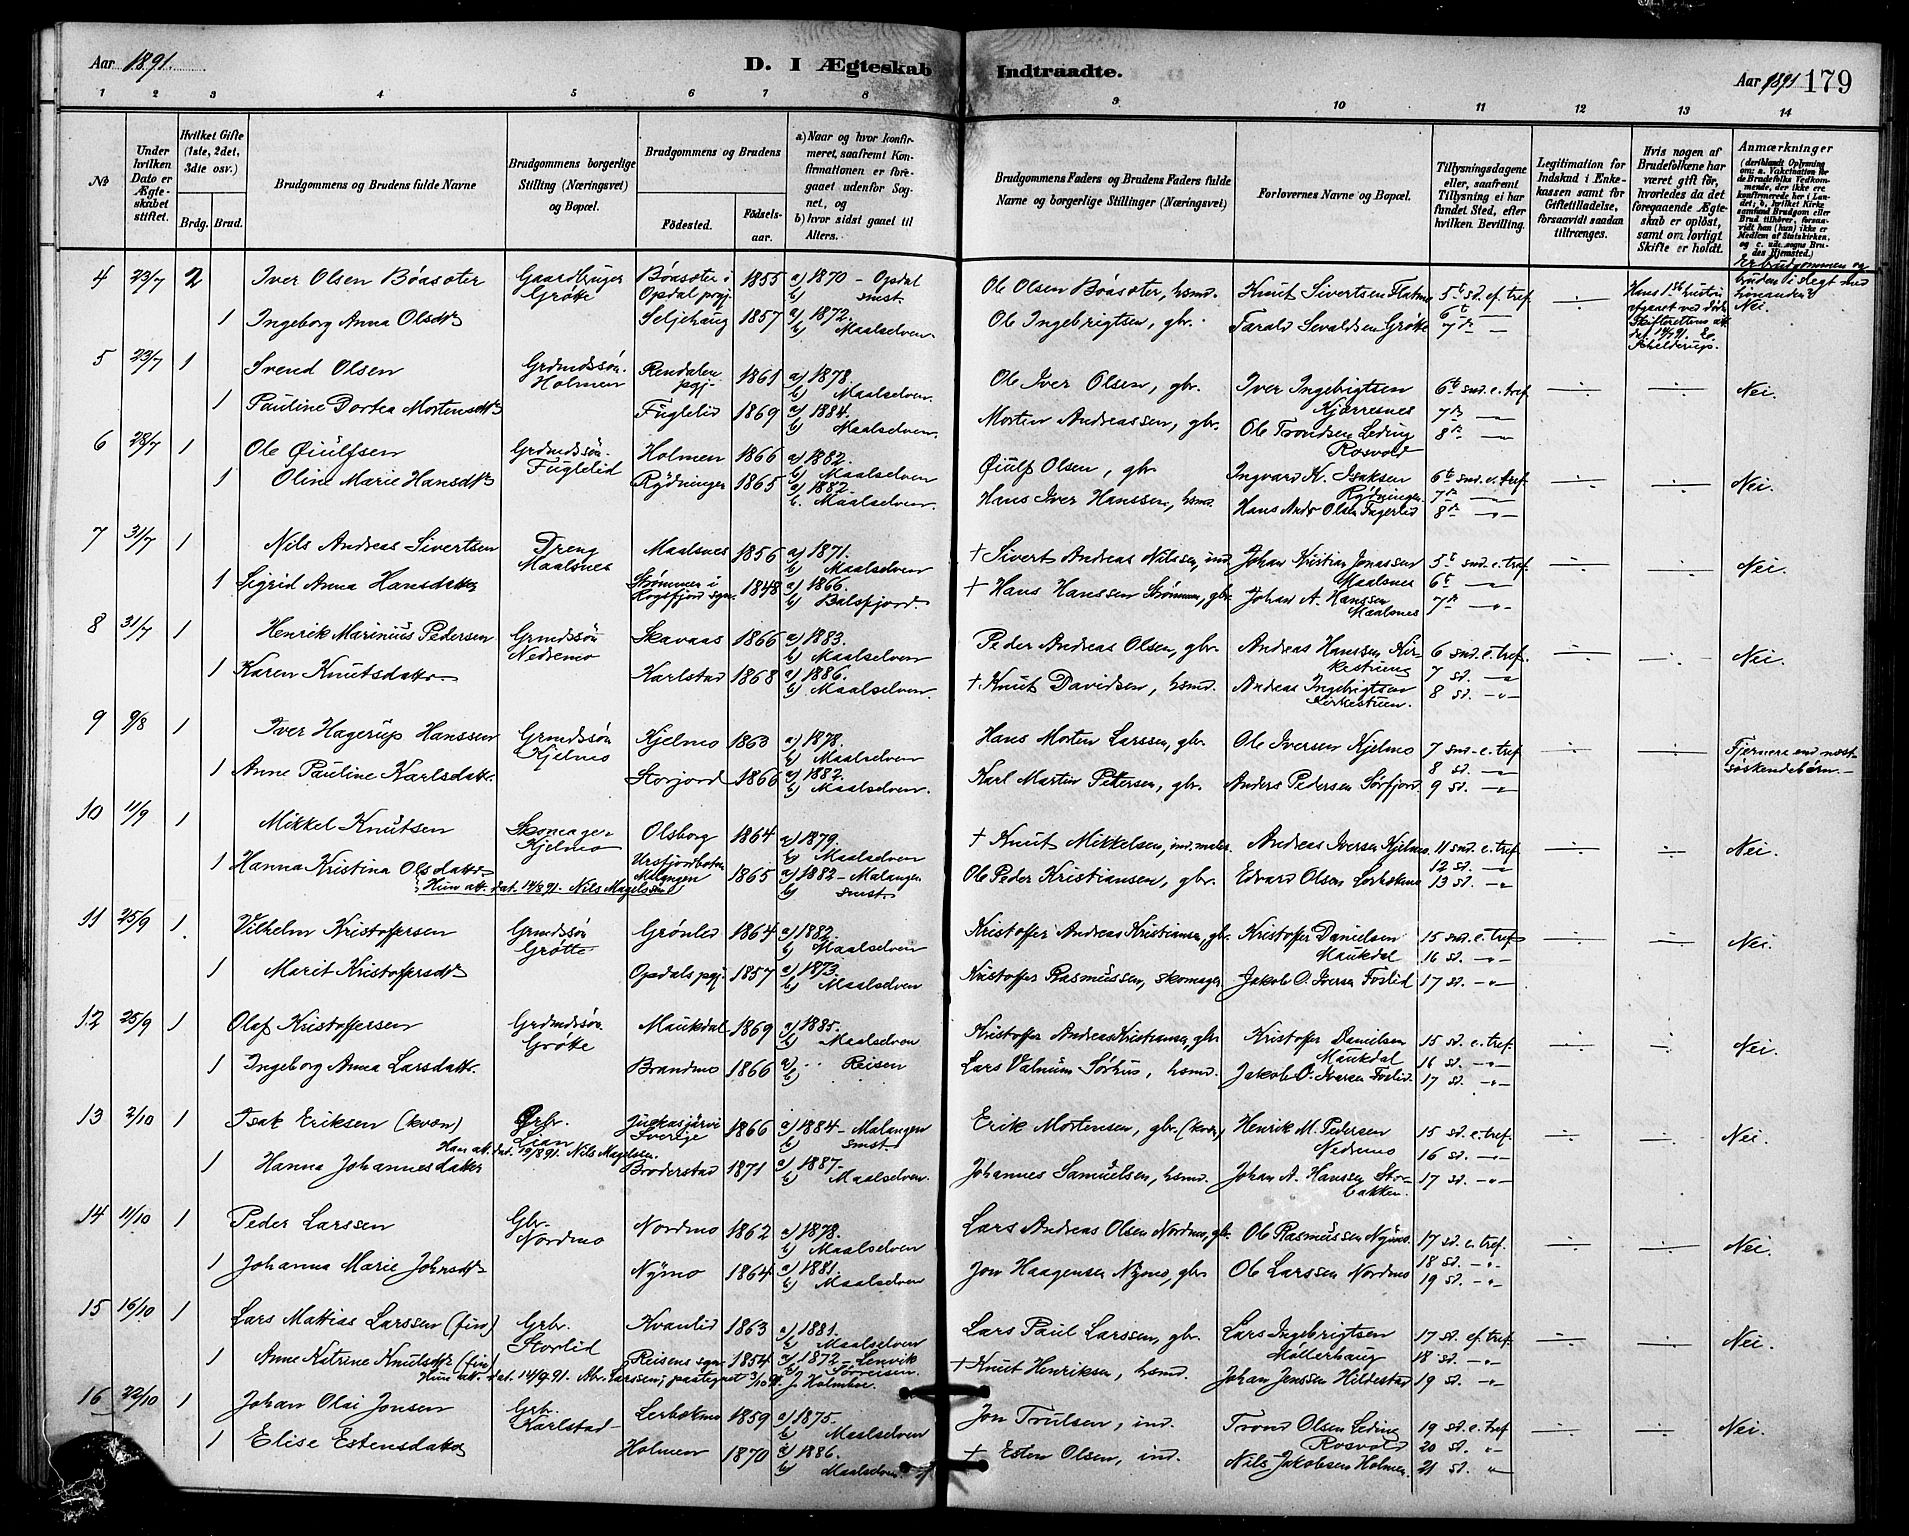 Aar 1891.
D. I Ægteskab Indtraadte.
Aar 1891 179
1 2 3 4 5 6 7 8 9 10 11 12 13 14
No.
Under hvilken Dato er Ægteskabet stiftet.
Hvilket Gifte (1ste, 2det, 3die osv.)
Brdg. Brud.
Brudgommens og Brudens fulde Navne
Brudgommens borgerlige Stilling (Næringsvei) og Bopæl.
Brudgommens og Brudens
Födested. Födselsaar.
a) Naar og hvor konfirmeret, saafremt Konfirmationen er foregaaet udenfor Sognet, og
b) hvor sidst gaaet til Alters.
Brudgommens Faders og Brudens Faders fulde Navne og borgerlige Stillinger (Næringsvei)
Forlovernes Navne og Bopæl.
Tillysningsdagene eller, saafremt Tillysning ei har fundet Sted, efter hvilken Bevilling.
Legitimation for Indskud i Enkekassen samt for Giftetilladelse, forsaavidt saadan tiltrænges.
Hvis nogen af Brudefolkene har været gift för, hvorledes da det foregaaende Ægteskab er oplöst, samt om lovligt Skifte er holdt.
Anmærkninger
4 23/7 2 Iver Olsen Böasæter Gaardbruger Grötte Böasæter i Opdal pgj. 1855 a) 1870 - Opdal b) smst. Ole Olsen Böasæter, hsmd. Knut Sivertsen 5te sd. ef. tref. -:-
1 Ingeborg Anna Olsdtr Seljehaug 1857 a) 1872. b) Maalselven. Ole Ingebrigtsen, gbr. Tarald Sevaldsen Grötte 6te 7de -"- Nei.
5 23/7 1 Svend Olsen Grdmdssön. Holmen Rendalen pgj. 1861 a) 1878. b) Maalselven. Ole Iver Olsen, gbr. Iver Ingebrigtsen Kjærresnes 6te snd. e. tref. -:- -:- Nei.
1 Pauline Dortea Mortensdtr Fuglelid 1869 a) 1884. b) Maalselven. Morten Andreassen, gbr. Ole Trondsen Leding Rosvold 7de -"- 8de -"-
6 28/7 1 Ole Öiulfsen Grdmdssön. Fuglelid Holmen 1866 a) 1882. b) Maalselven Öiulf Olsen, gbr. Ingvard K. Isaksen Rydninger 6te snd. e. tref. -:- -:- Nei.
1 Oline Marie Hansdtr Rydninger 1865 a) 1882. b. Maalselven. Hans Iver Hanssen, hsmd. Hans Andr. Olsen Fagerlid 7de 8de -"-
7 31/7 1 Nils Andreas Sivertsen Dreng Maalsnes Maalsnes 1856 a) 1871. b) Maalselven † Sivert Andreas Nilssen, ind. Johan Kristian Jonassen Maalsnes 5te snd. e. tref. -:- -:- Nei.
1 Sigrid Anna Hansdatter Strömmen i 1848 a) 1866. b) Balsfjord. † Hans Hanssen Strömmen, gbr. Johan A. Hanssen Maalsnes 6te -"- 7de -"-
8 31/7 1 Henrik Marinius Pedersen Grmdssön Nedremo Skavaas 1866 a) 1883. b) Maalselven Peder Andreas Olsen, gbr. Andreas Hanssen Kirkestuen 6 snd. e. tref. -:- -:- Nei.
1 Karen Knutsdatter. Karlstad 1868 a) 1886. b) Maalselven. † Knut Davidsen, hsmd. Andreas Ingebrigtsen Kirkestuen. 7 sd. -"- 8 sd. -"-
9 9/8 1 Iver Hagerup Hanssen Grmdssön Kjelmo Kjelmo 1863 a) 1878. b) Maalselven Hans Morten Larssen, gbr. Ole Iversen Kjelmo 7 snd. e. tref. -:- -:- Fjernere end næstsöskendebörn.
1 Anne Pauline Karlsdatter Storjord 1866 a) 1882. b) Maalselven. Karl Martin Petersen, gbr. Anders Pedersen Sörfjord 8 sd. -"- 9 sd. -"-
10 11/9 1 Mikkel Knutsen Skomager Kjelmo Olsborg 1864 a) 1879. b) Maalselven † Knut Mikkelsen, ind. Andreas Iversen Kjelmo 11 snd. e. tref. -:- -:- Nei.
1 Hanna Kristina Olsdatter Malangen 1865 a) 1882 - Malangen b) smst. Ole Peder Kristiansen, gbr. Edvard Olsen Lerbækmo 12 sd. -"- 13 sd. -"-
Hun att. dat. 14/8 91. Nils Magelssen
11 25/9 1. Vilhelm Kristoffersen Grmdssön Grötte Grönlid 1864 a) 1882. b) Maalselven Kristoffer Andreas Kristiansen, gbr. Kristoffer Danielsen Maukdal 15 snd. e. tref. -:- -:- Nei.
1 Marit Kristoffersdtr Opdals pgj. 1857 a) 1873. b) Maalselven Kristoffer Rasmussen, skomager Jakob O. Iversen Foslid 16 sd. -"- 17 sd. -"-
12 25/9 1 Olaf Kristoffersen Grdmdssön. Grötte Maukdal 1869 a) 1885. b) Maalselven Kristoffer Andreas Kristiansen, gbr. Kristoffer Danielsen Maukdal 15 sd. e. tref. -:- -:- Nei.
1 Ingeborg Anna Larsdatter. Brandmo 1866 a) b) Reisen Lars Valnum Sörhus, hsmd. Jakob O. Iversen Foslid 16 sd. -"- 17 sd. -"-
13 2/10 1 Isak Eriksen (kvæn) Grbr. Lian Juckasjärvi Sverige 1866 a) 1884 - Malangen b) smst. Erik Mortensen, gbr. (kvæn) Henrik M. Pedersen Nedremo 15 sd. e. tref. -:- -:- Nei.
Han att. dat. 19/8 91. Nils Magelssen.
1 Hanna Johannesdatter Broderstad 1871 a) 1887. b) Maalselven. Johannes Samuelsen, hsmd. Johan A. Hanssen Storbakken. 16 sd. -"- 17 sd. -"-
14 11/10 1 Peder Larssen Gbr. Nordmo Nordmo 1862 a) 1878. b) Maalselven Lars Andreas Olsen Nordmo, gbr. Ole Rasmussen Nymo. 17 sd. e. tref. -:- -:- Nei.
1 Johanna Marie Johnsdtr Nymo 1864 a) 1881. b) Maalselven Jon Haagensen Nymo, gbr. Ole Larssen Nordmo 18 sd. -"- 19 sd. -"-
15 16/10 1 Lars Mattias Larssen (fin) Grbr. Storlid Kvanlid 1863 a) 1881. b) Maalselven Lars Paul Larssen, gbr. Lars Ingebrigtsen Möllerhaug 17 sd. ef. tref. -:- -:- Nei.
1 Anne Katrine Knutsdtr (fin) Reisens sgn. 1854 a) 1872 - Lenvik b) Sörreisen. † Knut Henriksen, hsmd. Johan Jenssen Hildestad 18 sd. -"- 19 sd. -"-
Hun att. dat. 14/9 91. Abr. Larssen; pategnet 3/10 91. J. Holmboe.
16 22/10 1 Johan Olai Jonsen Grbr. Karlstad Lerbækmo 1859 a) 1875. b) Maalselven Jon Trulsen, ind. Trond Olsen Leding Rosvold 19 sd. e. tref. -:- -:- Nei.
1 Elise Estensdatter Holmen 1870 a) 1886. b) Maalselven † Esten Olsen, ind. Nils Jakobsen Holmen. 20 sd. " 21 sd. "